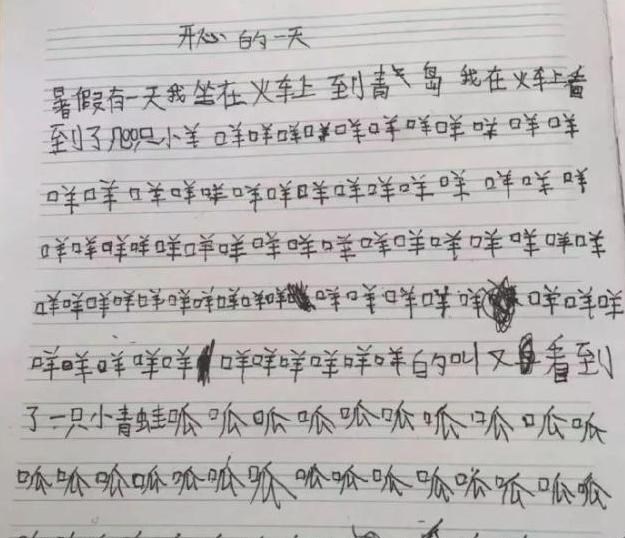 开心的一天
暑假有一天我坐在火车上 到青岛 我在火车上看
到了几只小羊 咩咩咩咩咩咩咩咩咩咩咩
咩咩咩咩咩咩咩咩咩咩咩咩咩咩咩
咩咩咩咩咩咩咩咩咩咩咩咩咩咩咩咩咩
咩咩咩咩咩咩咩咩咩咩咩咩咩咩咩咩咩咩
咩咩咩咩咩咩咩咩咩咩咩的叫又看到
了一只小青蛙呱呱呱呱呱呱呱呱呱呱
呱呱呱呱呱呱呱呱呱呱呱呱呱呱